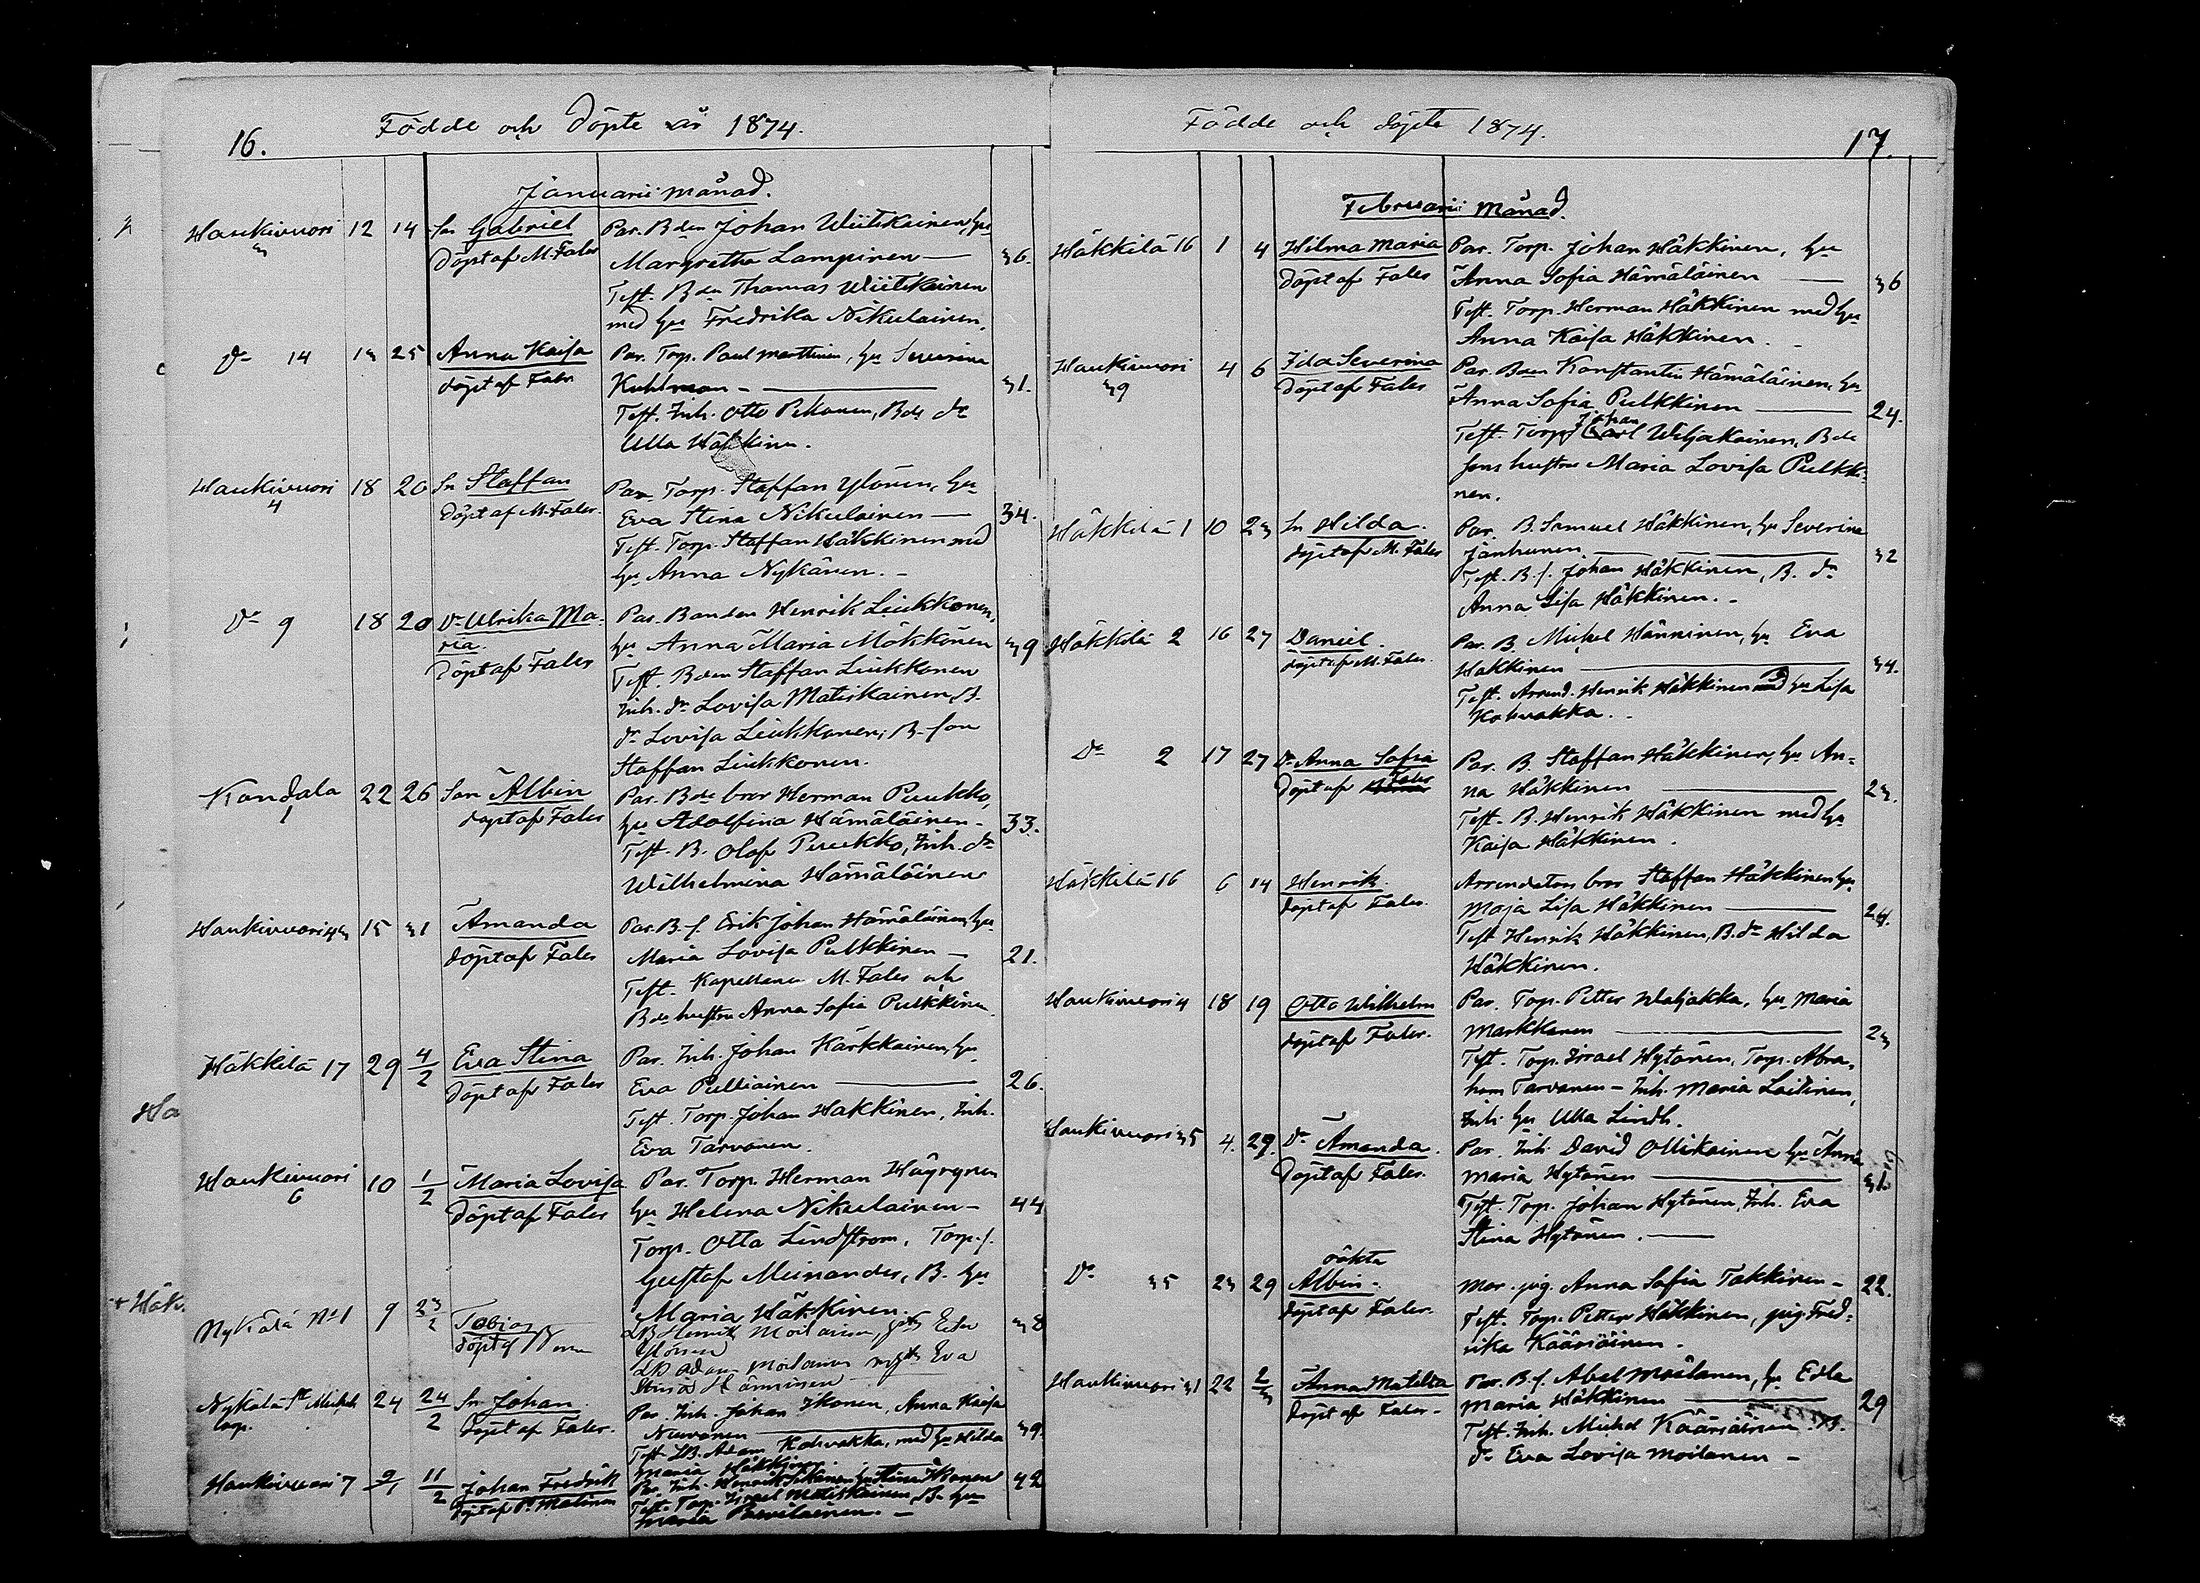 16.
Födde och Döpte år 1874.
Januarii månad.
Haukivuori 3 12 14 Sn Gabriel Par. Bden Johan Wiitikainen, hu
Döpt af M. Fales Margretha Lampinen — 36.
Test. Bden Thomas Wiitikainen
med hu Fredrika Nikulainen.
Do 14 13 25 Anna Kaisa Par. Torp. Paul Marttinen, hu Severina
döpt af Fales Kuhlman — 31.
Test. Inh. Otto Pekonen, Bde dr
Ulla Häkkinen.
Haukivuori 4 18 20 Sn Staffan Par. Torp. Staffan Ylönen, hu
Döpt af M. Fales. Eva Stina Nikulainen — 34.
Test. Torp. Staffan Häkkinen med
hu Anna Nykänen. –
Do 9 18 20 Dr Ulrika Ma-
ria. Par. Bonden Henrik Liukkonen,
hu Anna Maria Mökkönen 39
Döpt af Fales Test. Bden Staffan Liukkonen
Inh. dr Lovisa Matiskainen, B.
dr Lovisa Liukkonen, B. son
Staffan Liukkonen.
Kandala 1 22 26 Son Albin Par. Bde bror Herman Puukko,
döpt af Fales hu Adolfina Hämäläinen – 33.
Test. B. Olof Puukko, Inh. dr
Wilhelmina Hämäläinen
Haukivuori 43 15 31 Amanda Par. B. s. Erik Johan Hämäläinen, hu
döpt af Fales Maria Lovisa Pulkkinen — 21.
Test. Kapellanen M. Fales och
Bde hustru Anna Sofia Pulkkinen
Häkkilä 17 29 4/2 Eva Stina Par. Inh. Johan Kärkkäinen, hu
Döpt af Fales Eva Pulliainen — 26.
Test. Torp. Johan Häkkinen, Inh.
Eva Tarvanen.
Haukivuori 6 10 1/2 Maria Lovisa Par. Torp. Herman Häyrynen
Döpt af Fales hu Helena Nikulainen – 44
Torp. Otto Lindström, Torp. s.
Gustaf Meinander, B. hu
Maria Häkkinen.
Nykälä No 1 9 23/2 Tobias LB Henrik Moilainen,
Döpt af Ylönen 38
LB Adam Moilainen Eva
Stina Hänninen
Nykälä St Michels 24 24/2 Sn Johan. Par. Inh. Johan Ikonen, Anna Kaisa
Döpt af Fales. 39.
Test. LB. Adam Kohvakka, med hu Hilda
Maria Häkkinen
Haukivuori 7 11/2 Johan Fredrik Par. Inh. Henrik hu Stina Ikonen 42
Döpt af Test. Torp. Israel Matiskainen, B. hu
Maria –
Födde och döpte 1874.
17.
Februarii Månad.
Häkkilä 16 1 4 Hilma Maria Par. Torp. Johan Häkkinen, hu
Döpt af Fales Anna Sofia Hämäläinen — 36
Test. Torp. Herman Häkkinen med hu
Anna Kaisa Häkkinen. –
Haukivuori 39 4 6 Ida Severina Par. Bden Konstantin Hämäläinen, hu
Döpt af Fales Anna Sofia Pulkkinen — 24.
Johan
Test. Torp. Carl Wiljakainen, Bde
sons hustru Maria Lovisa Pulkki-
nen.
Häkkilä 1 10 23 Sn Hilda. Par. B. Samuel Häkkinen, hu Severina
döpt af M. Fales Janhunen — 32
Test. B. s. Johan Häkkinen, B. dr
Anna Lisa Häkkinen. –
Häkkilä 2 16 27 Daniel. Par. B. Michel Hänninen, hu Eva
döpt af M. Fales. Häkkinen — 34.
Test. Arrend. Henrik Häkkinen med hu Lisa
Kohvakka. –
Do 2 17 27 Dr Anna Sofia Par. B. Staffan Häkkinen, hu An-
Döpt af Fales na Häkkinen — 23.
Test. B. Henrik Häkkinen med hu
Kaisa Häkkinen.
Häkkilä 16 6 14 Henrik. Arrendators bror Staffan Häkkinen hu
Döpt af Fales. Maja Lisa Häkkinen — 24.
Test Henrik Häkkinen, B. dr Hilda
Häkkinen.
Haukivuori 4 18 19 Otto Wilhelm Par. Torp. Petter Waljakka, hu Maria
döpt af Fales. Markkanen — 23
Test. Torp. Israel Hytönen, Torp. Abra-
ham Tarvanen – Inh. Maria Laitinen,
Inh. hu Ulla Lindh.
Haukivuori 35 4. 29. Dr Amanda. Par. Inh. David Ollikainen hu Anna
Döpt af Fales. Maria Hytönen — 31.
Test. Torp. Johan Hytönen, Inh. Eva
Stina Hytönen. —
Do 35 23 29 oäkta
Albin. Mor. pig. Anna Sofia Takkinen – 22.
döpt af Fales. Test. Torp. Petter Häkkinen, pig. Fred-
rika Kääriäinen.
Haukivuori 31 22 2/3 Anna Matilda Par. B. s. Abel Moilanen, hu Edla
Döpt af Fales – Maria Häkkinen — 29
Test. Inh. Michel Kääriäinen B.
dr Eva Lovisa Moilanen –
Ha